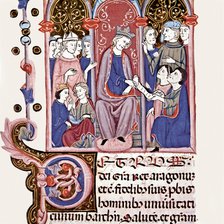 PETRVS
dei gra Rex aragonum
fidelibus suis pbis
hominibus universitati
civium barchn Salute et gram